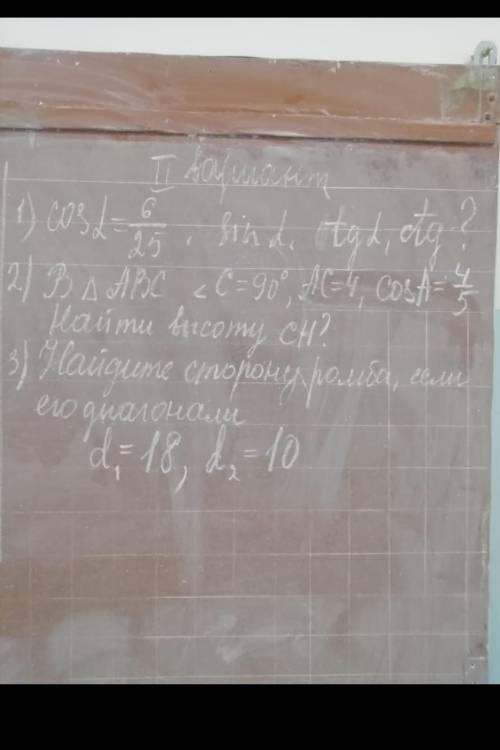 II вариант
1) cosα = 6/25, sin α, tg α, ctg ?
2) В △ ABC ∠C = 90°, AC = 4, cosA = 4/5
Найти высоту CH?
3) Найдите сторону ромба, если
его диагонали
d₁ = 18, d₂ = 10